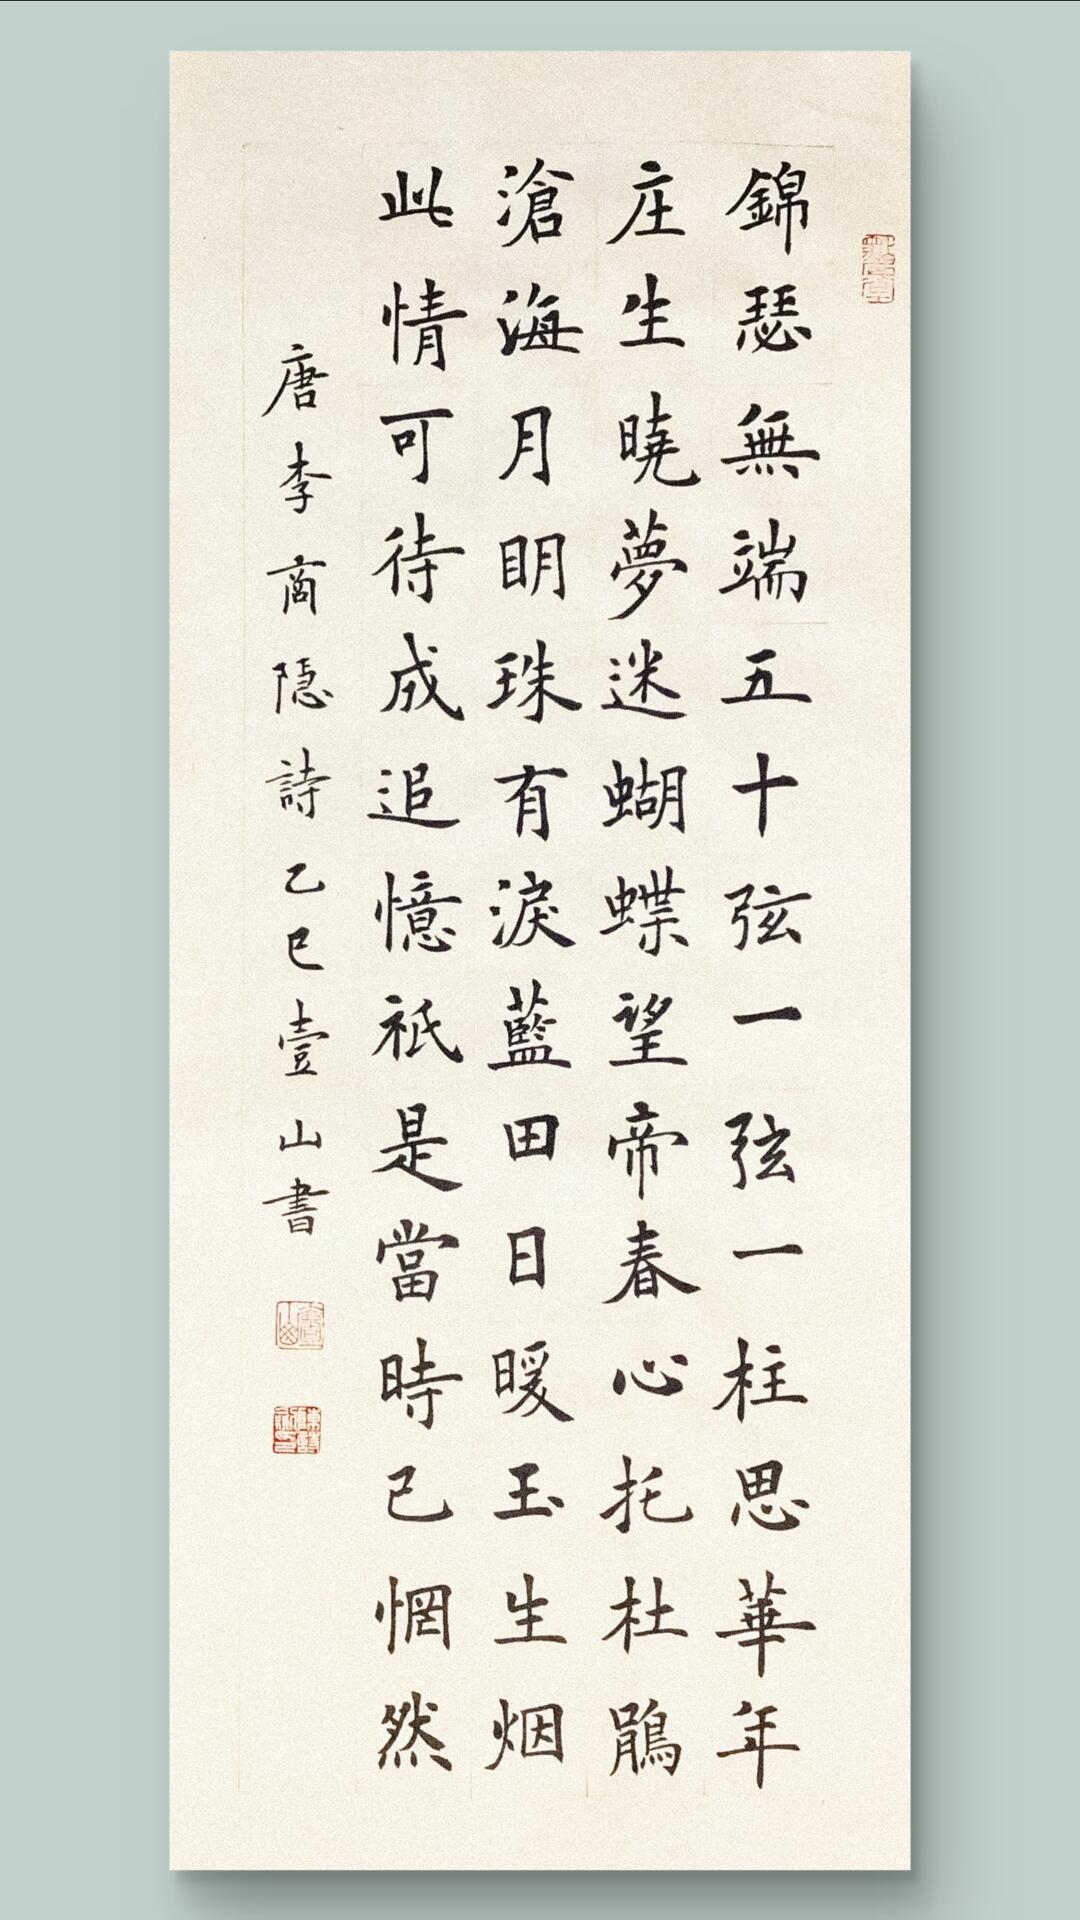 錦瑟無端五十弦一弦一柱思華年
庄生曉夢迷蝴蝶望帝春心托杜鵑
滄海月明珠有淚藍田日暖玉生烟
此情可待成追憶祇是當時已惘然
唐李商隱詩乙巳壹山書